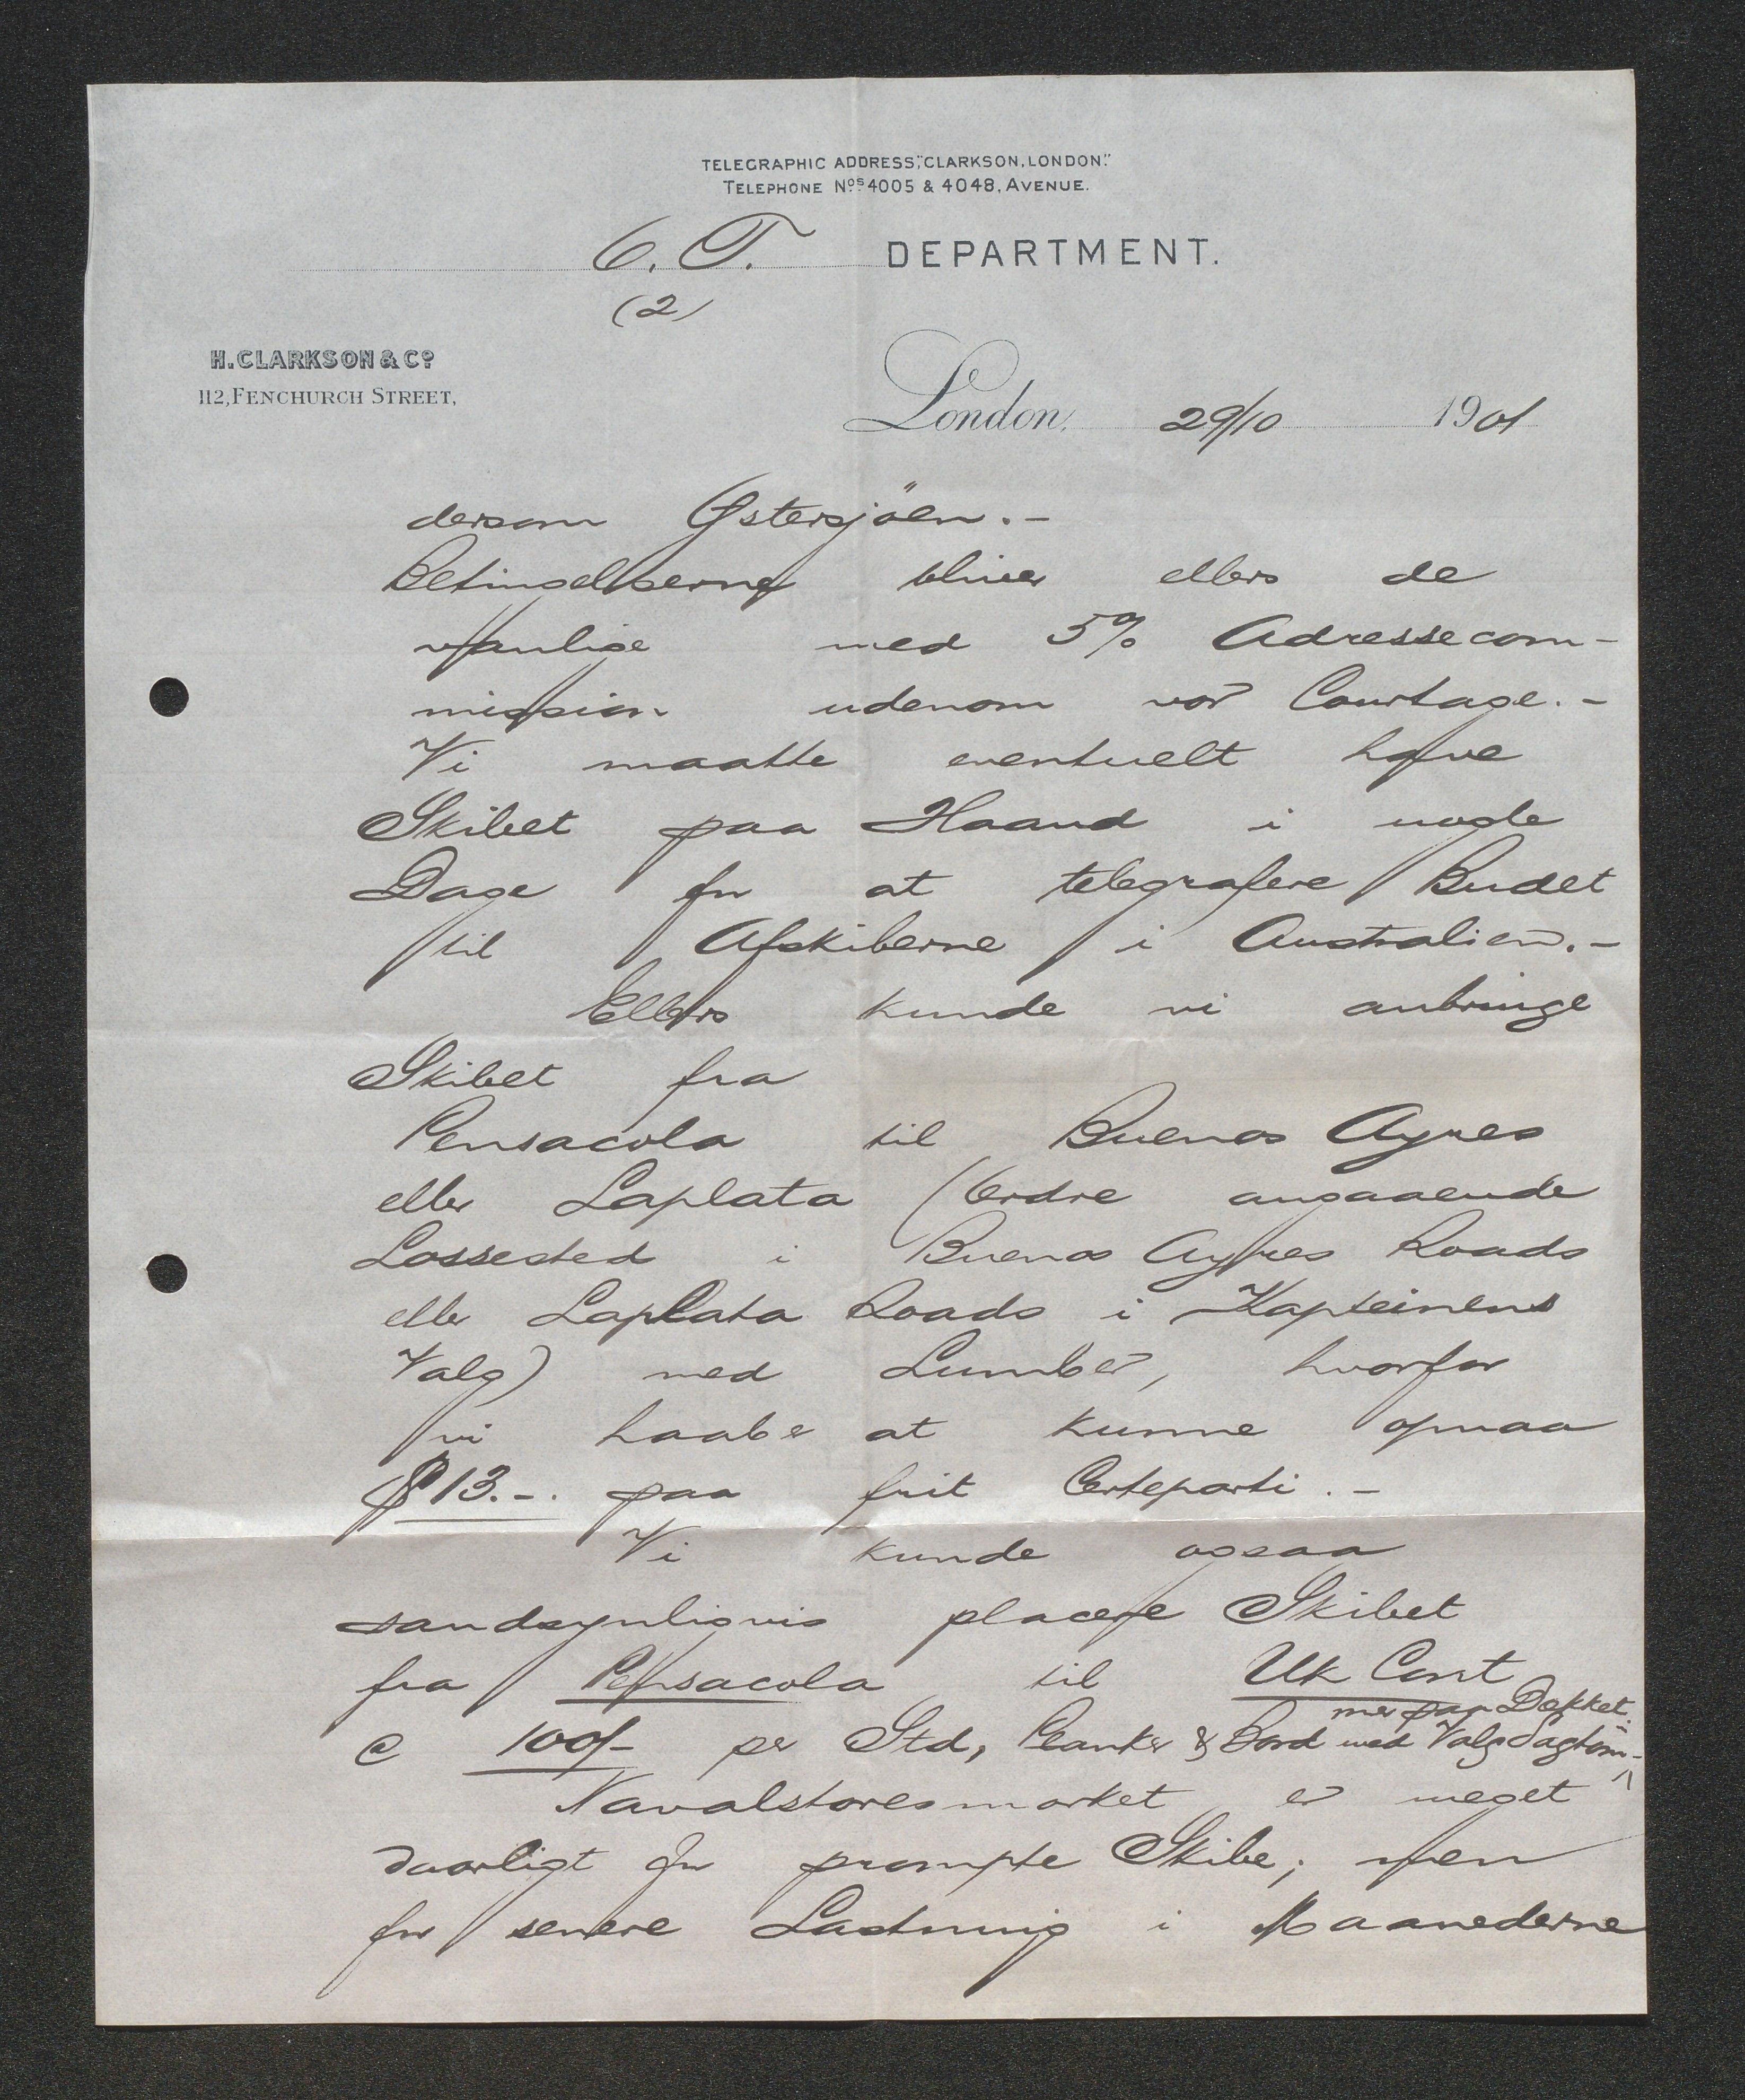 TELEGRAPHIC ADDRESS, "CLARKSON, LONDON."
TELEPHONE Nos. 4005 & 4048, AVENUE.
C. T. DEPARTMENT.
(2)
H. CLARKSON & Co
112, FENCHURCH STREET,
London, 29/10 1901
dersom Østersjöen.-
Betingelserne bliver ellers de
vanlige med 5% Adressecom-
mission udenom vor Courtage.-
Vi maatte eventuelt have
Skibet paa Haand i nogle
Dage for at telegrafere Budet
til Afskiberne i Australien.-
Ellers kunde vi anbringe
Skibet fra
Pensacola til Buenos Ayres
eller Laplata (Ordre angaaende
Lossested i Buenos Ayres Roads
eller Laplata Roads i Kapteinens
Valg) med Lumber, hvorfor
vi haaber at kunne opnaa
$13.-. paa frit Certeparti.-
Vi kunde ogsaa
sandsynligvis placere Skibet
fra Pensacola til UK Cont
paa Dækket.
@ 100/- per Std, Planker & Bord med Valg Sagtöm-
Navalstoresmarket er meget
daarligt for prompte Skibe; men
for senere Lastning i Maanederne